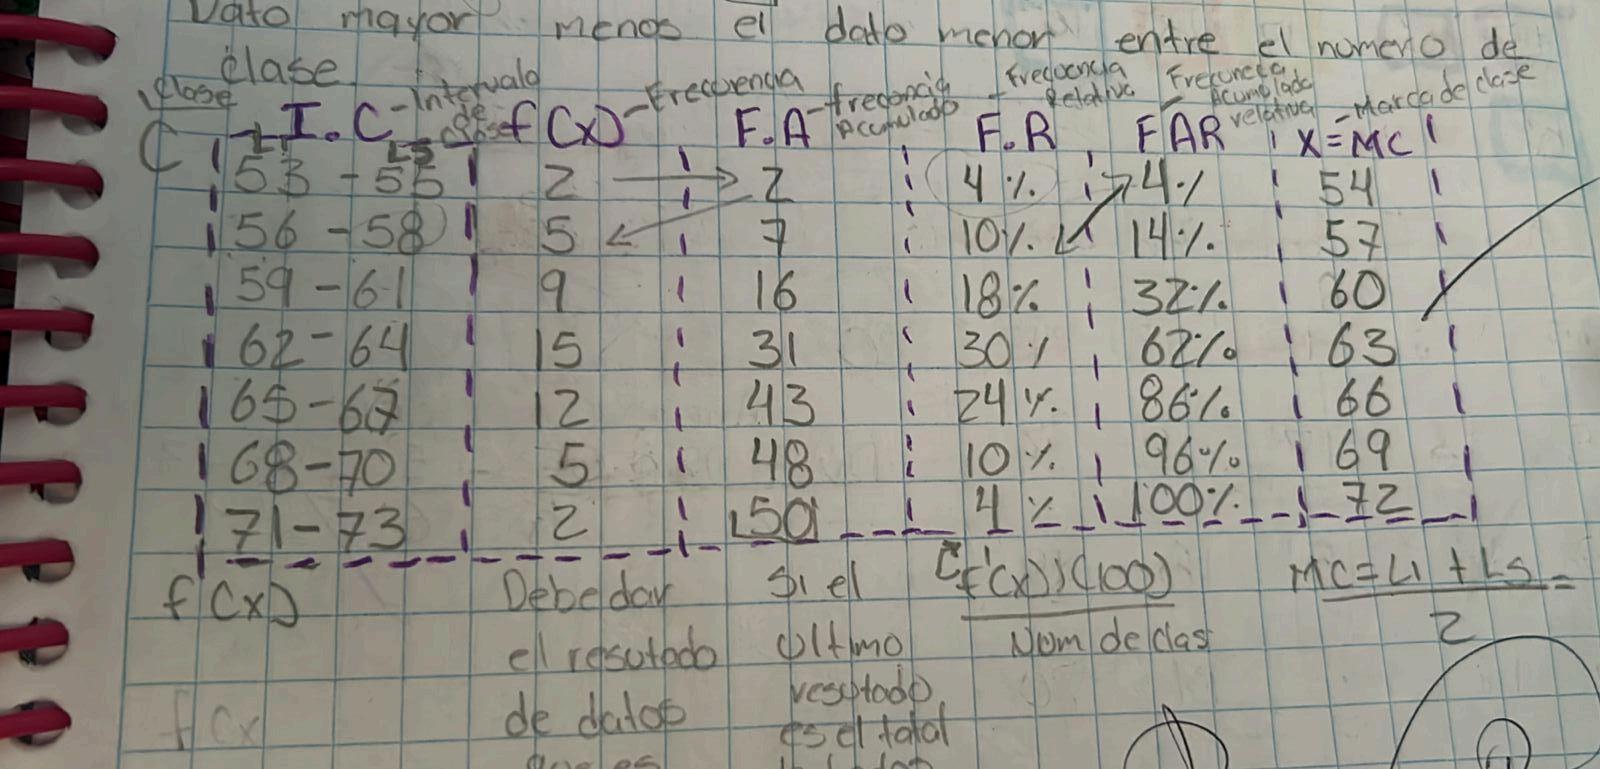 Dato mayor menos el dato menor entre el numero de
clase
Clase - Intervalo de clase - Frecuencia - frecuncia Acumulado - Frecuencia Relativa Frecuncia Acumulada relativa - Marca de clase
C I.C f(x) F.A F.R FAR X=MC
LI LS
53 - 55 2 2 4% 4% 54
56 - 58 5 7 10% 14% 57
59 - 61 9 16 18% 32% 60
62 - 64 15 31 30% 62% 63
65 - 67 12 43 24% 86% 66
68 - 70 5 48 10% 96% 69
71 - 73 2 50 4% 100% 72
f(x) Debe dar Si el (f(x))(100) MC = LI + LS =
el resutado Ultimo Nom de clas 2
de datos resultado
f(x es el total